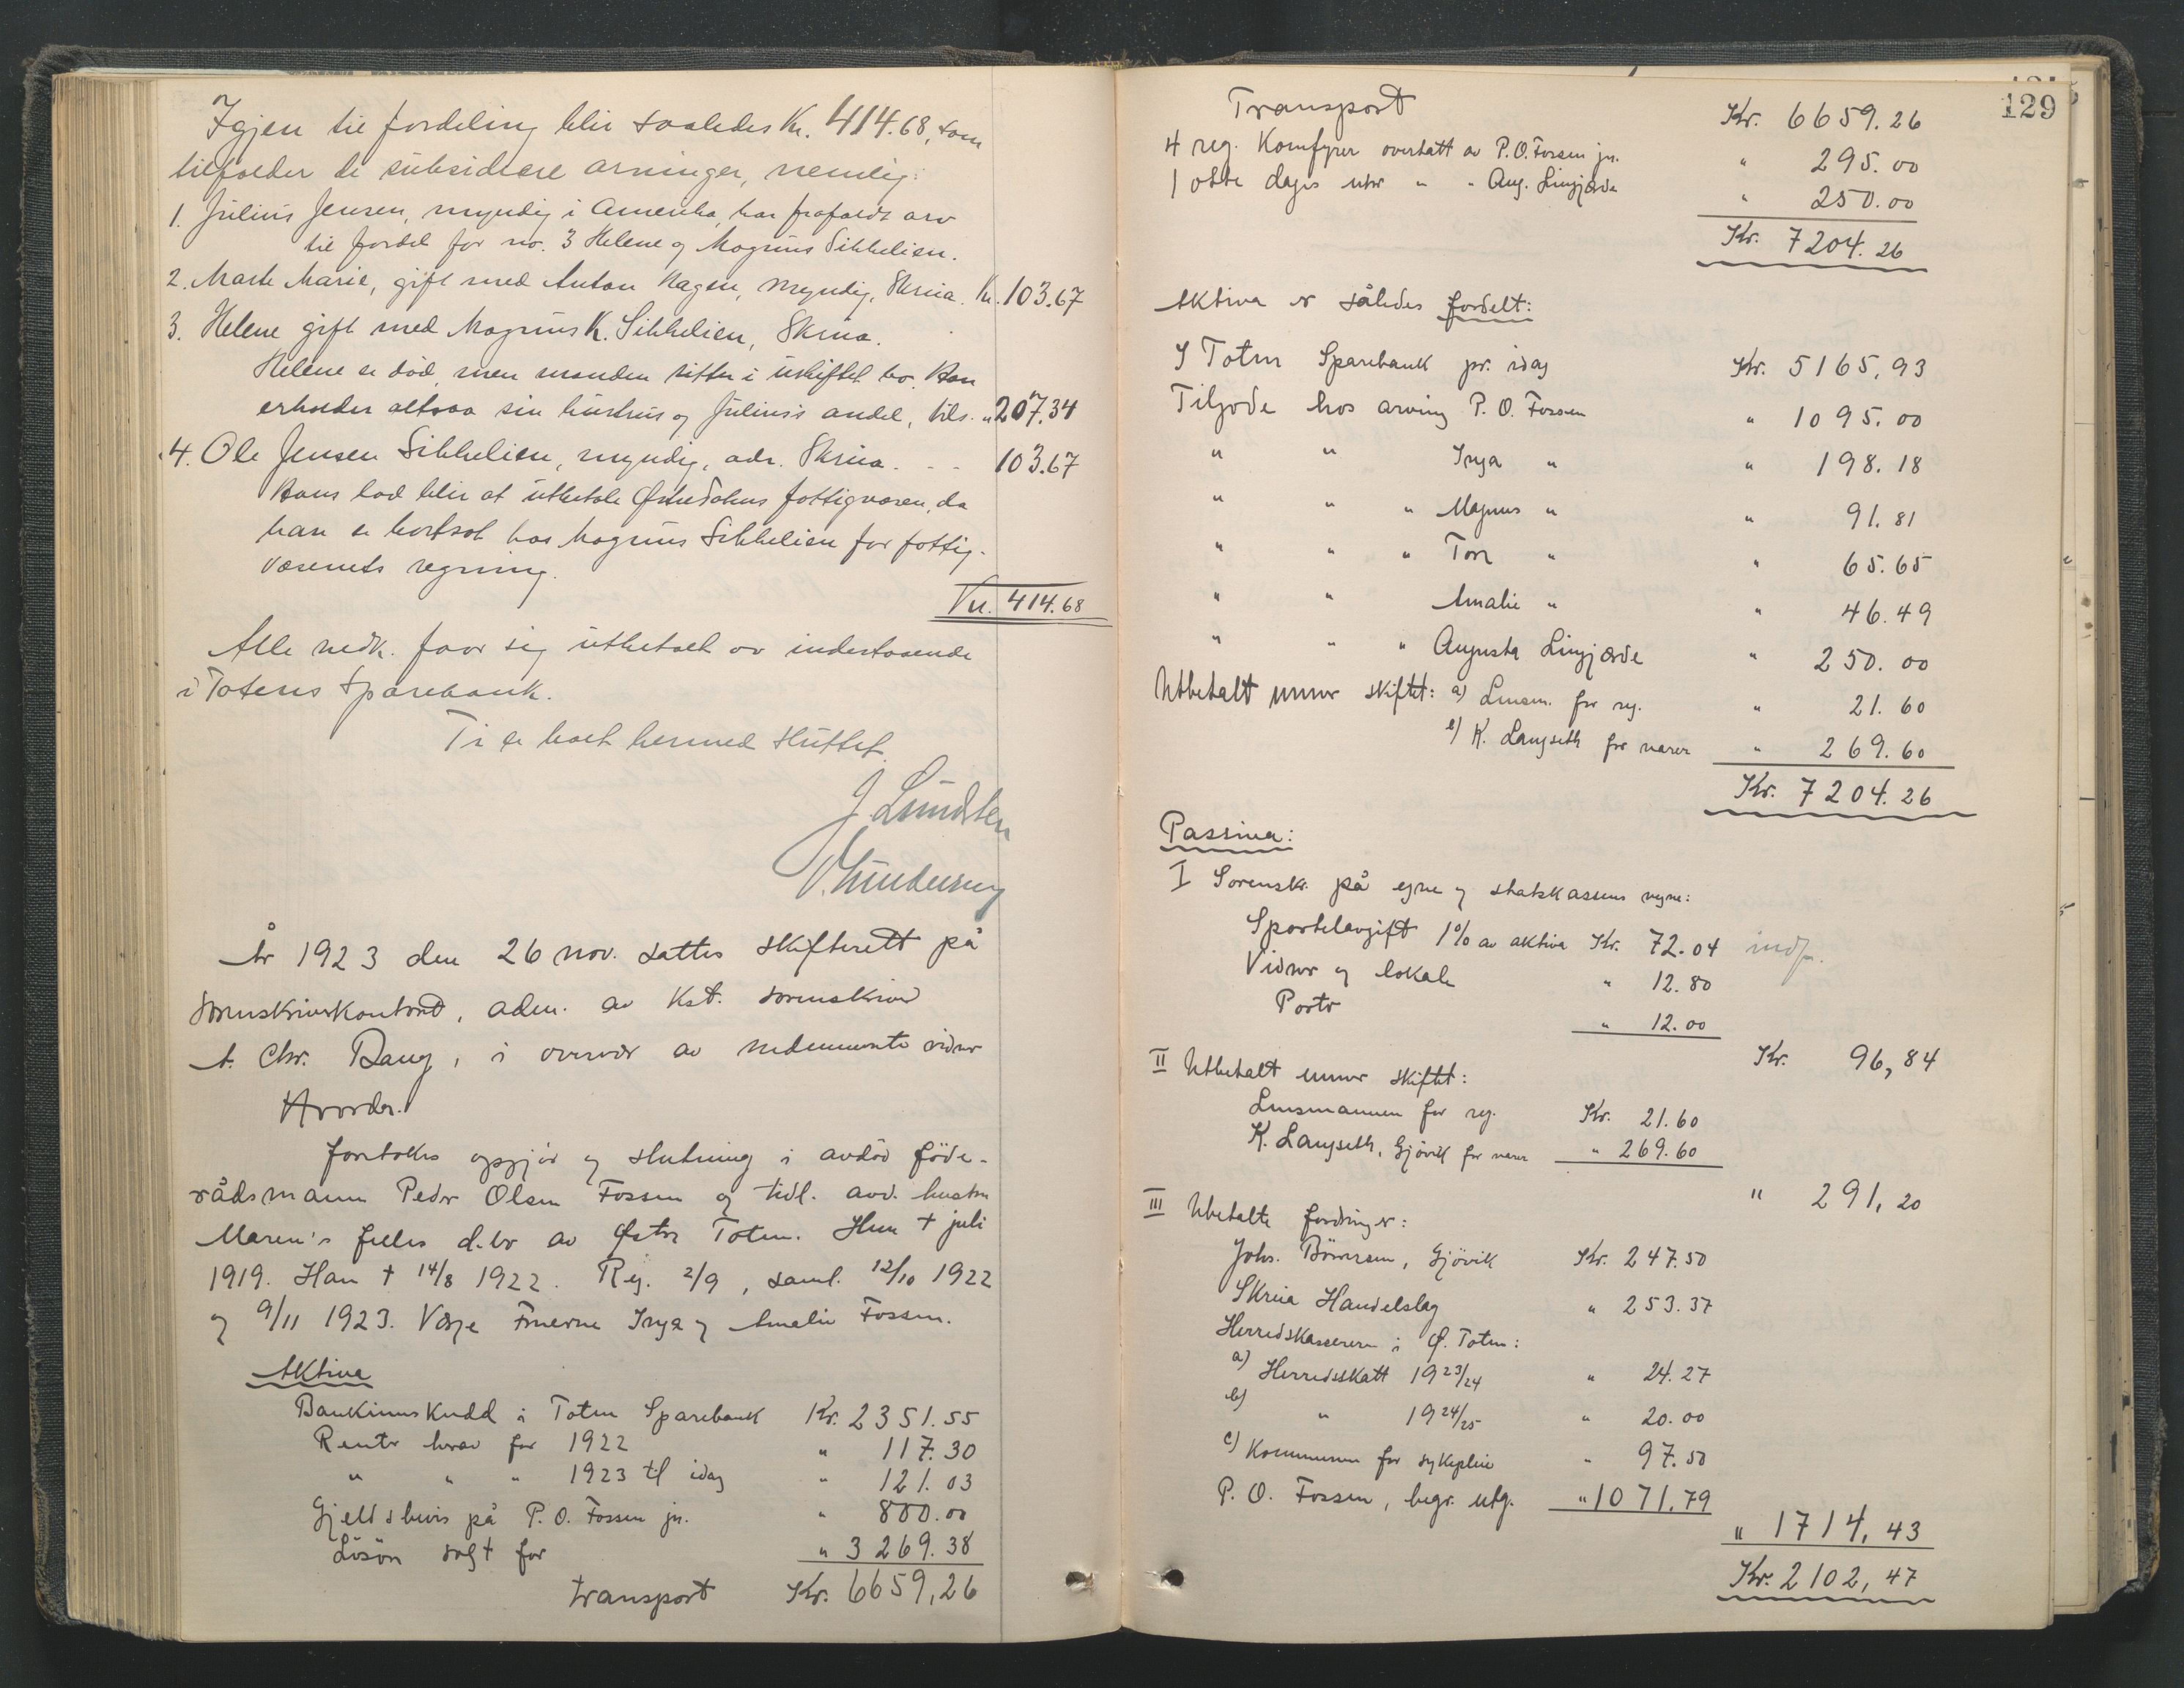 Igjen til fordeling blir saaledes Kr. 414.68, som
tilfalder de subsidiære arvinger, nemlig:
1. Julius Jensen, myndig i Amerika, har frafaldt arv
til fordel for no. 3 Helene og Magnus Sikkelien.
2. Marte Marie, gift med Anton Hagen, myndig, Skreia. Kr. 103.67
3. Helene gift med Magnus K. Sikkelien, Skreia.
Helene er død, men manden sitter i uskiftet bo. Han
erholder altsaa sin hustrus og Julius's andel, tils. " 207.34
4. Ole Jensen Sikkelien, myndig, adr. Skreia. - - 103.67
Hans lod blir at utbetale Østre Totens fattigvæsen, da
han er bortsat hos Magnus Sikkelien for fattig-
væsenets regning.
Kr. 414.68
Alle vedk. faar sig utbetalt av indestaaende
i Totens Sparebank.
Ti er boet hermed sluttet.
J. Lundsten

År 1923 den 26 nov. sattes skifterett på
sorenskriverkontoret, adm. av kst. sorenskriver
A. Chr. Bang, i overvær av nedennevnte vidner
Hvorder.
foretokes opgjør og slutning i avdød føde-
rådsmann Peder Olsen Fossen og tidl. avd. hustru
Maren's felles d.bo av Østre Toten. Hun † juli
1919. Han † 14/8 1922. Reg. 2/9, saml. 12/10 1922
og 9/11 1923. Verje Fruerne Inga og Amalie Fossen.
Aktiva
Bankinnskudd i Toten Sparebank Kr. 2351.55
Renter herav for 1922 " 117.30
" " " 1923 til idag " 121.03
Gjeldsbevis på P. O. Fossen jr. " 800.00
Løsøre solgt for " 3269.38
transport Kr. 6659,26
129
Transport Kr. 6659.26
4 reg. Komfyrer overtatt av P. O. Fossen jr. " 295.00
1 otte dages uhr " " Aug. Lingjærde " 250.00
Kr. 7204.26
Aktiva er således fordelt:
I Toten Sparebank pr. idag Kr. 5165,93
Tilgode hos arving P. O. Fossen " 1095.00
" " Inga " " 198.18
" " " Magnus " " 91.81
" " " Tora " " 65.65
" " Amalie " " 46.49
" " " Augusta Lingjærde " 250.00
Utbetalt under skiftet: a) Lensm. for reg. " 21.60
b) K. Langseth for varer " 269.60
Kr. 7204.26
Passiva:
I Sorenskr. på egne og statskassens vegne:
Sportelavgift 1% av aktiva Kr. 72.04 indf.
Vidner og lokale " 12.80
Porto " 12.00
Kr. 96,84
II Utbetalt under skiftet:
Lensmannen for reg. Kr. 21.60
K. Langseth, Gjøvik for varer " 269.60
" 291,20
III Ubetalte fordringer:
Johs. Börresen, Gjövik Kr. 247.50
Skreia Handelslag " 253.37
Herredskassereren i Ø. Toten:
a) Herredsskatt 1923/24 " 24.27
b) " 1924/25 " 20.00
c) Kommunen for sykepleie " 97.50
P. O. Fossen, begr. utg. " 1071,79
" 1714,43
Kr. 2102,47